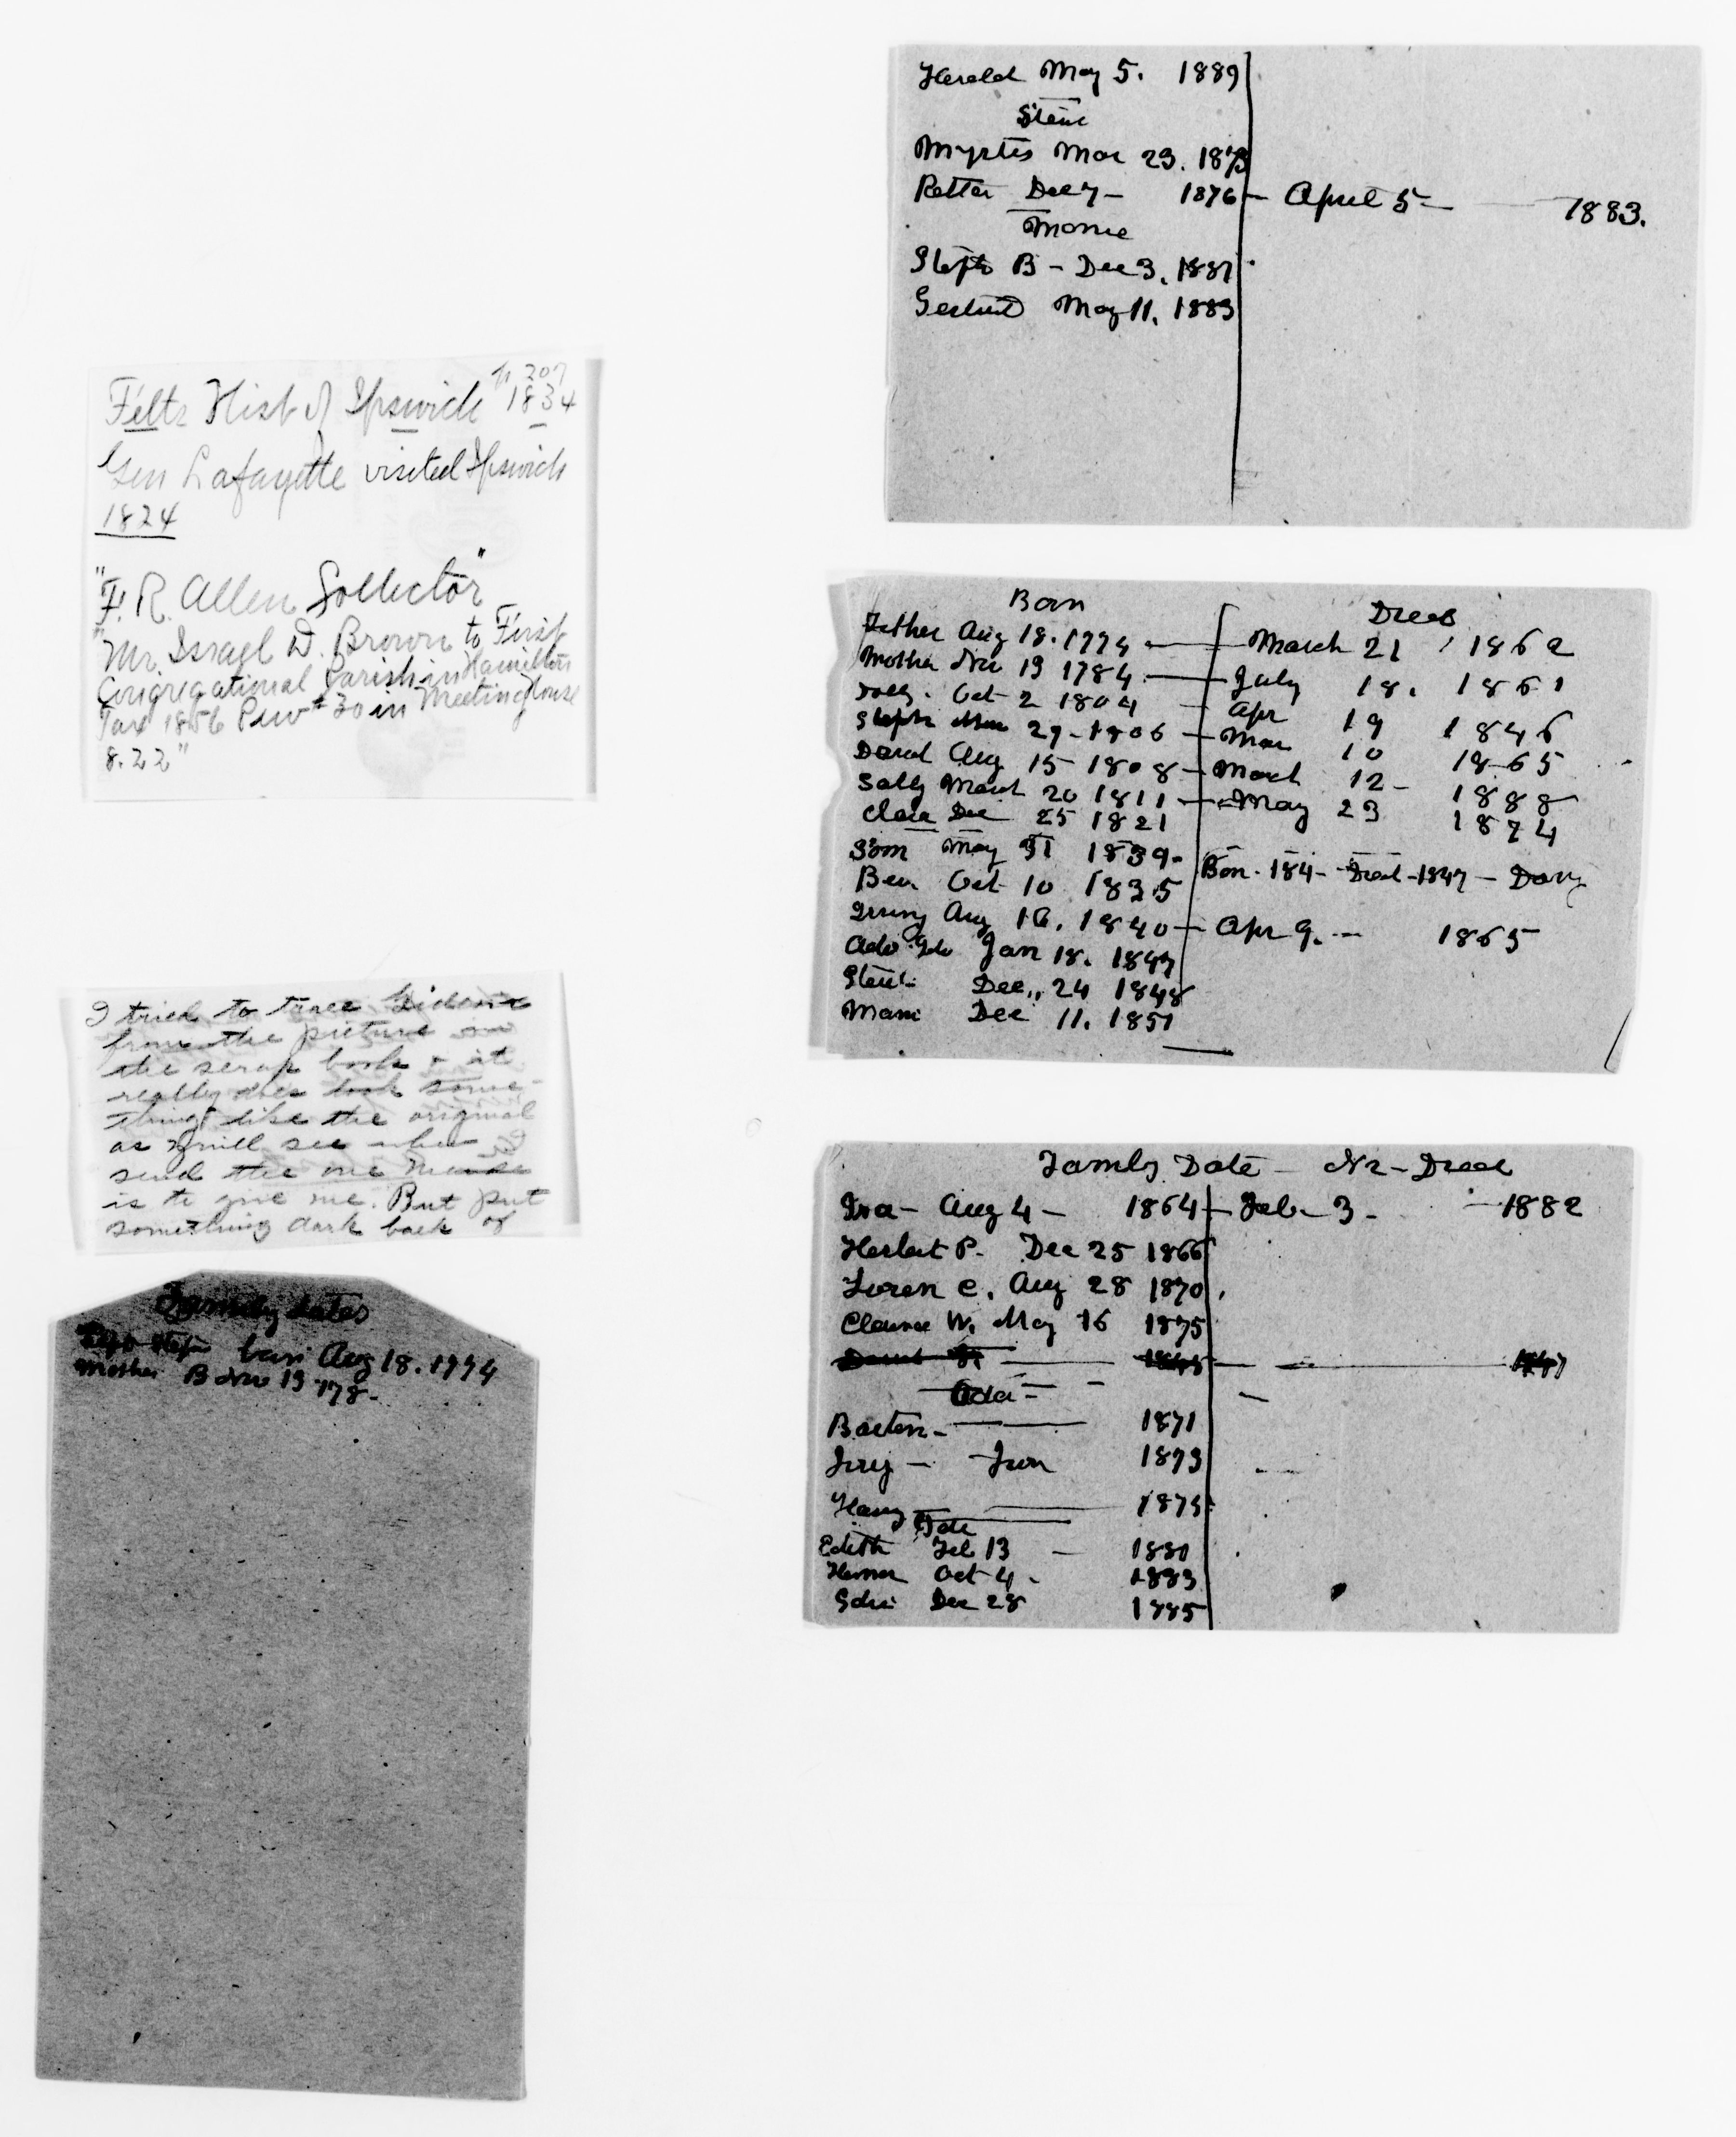 Felts Hist of Ipswich p 207 1834
Gen Lafayette visited Ipswich
1824
"F. R. Allen Collector"
"Mr. Israel D. Brown to First
Congregational Parish in Hamilton
Tax 1856 Pew #30 in Meeting house
8.22"
I tried to trace
from the picture in
the scrap book & it
really does look some-
thing like the original
as will see when I
send thee one
is to give me. But put
something dark back of
Family dates
born Aug 18. 1774
Mother B Nov 13 178-
Herold May 5. 1889
Steve
Myrtis Mar 23. 1873
Retta Dec 7 - 1876 - April 5 - 1883.
Mamie
Steph B - Dec 3. 1881
Gertrud May 11. 1883
Born Died
Father Aug 18. 1774 - March 21 1862
Mother Nov 13 1784 - July 18. 1861
Dolly. Oct 2 1804 - Apr 19 1846
Steph 29 - 1806 - Mar 10 1865
David Aug 15 1808 - March 12 - 1888
Sally March 20 1811 - May 23 1874
Clara Dec 25 1821
May 31 1839. Born. 184- Died - 1847 - Dany
Ben Oct 10 1835
Irving Aug 16. 1840 - Apr 9. - 1865
Jan 18. 1847
Dec,, 24 1848
Mami Dec 11. 1851
Family Date - Died
Ira - Aug 4 - 1864 - Feb - 3 - 1882
Herbert P. Dec 25 1866
Loren C. Aug 28 1870
Clarence W. May 16 1875
Ada -
Barton - 1871
- 1873
Harry 1875
Edith Feb 13 - 1881
Homer Oct 4 - 1883
Dec 28 1885